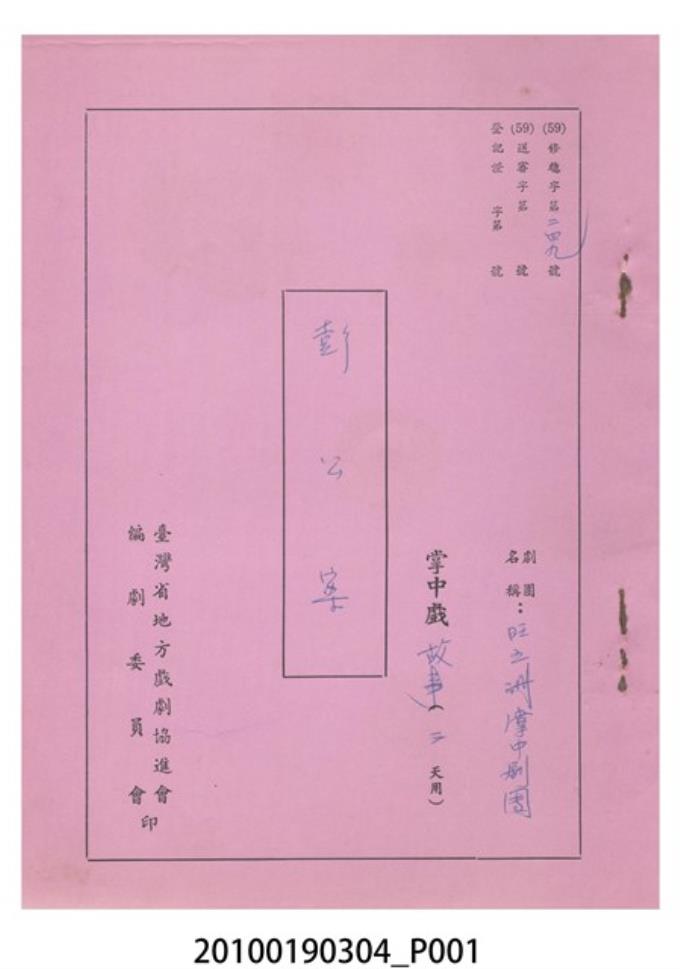 (59)修總字第二四九號
(59)送審字第 號
登記證 字第 號
劇團名稱：旺五洲掌中劇團
掌中戲故事(二天用)
彭公案
臺灣省地方戲劇協進會
編劇委員會印
20100190304_P001